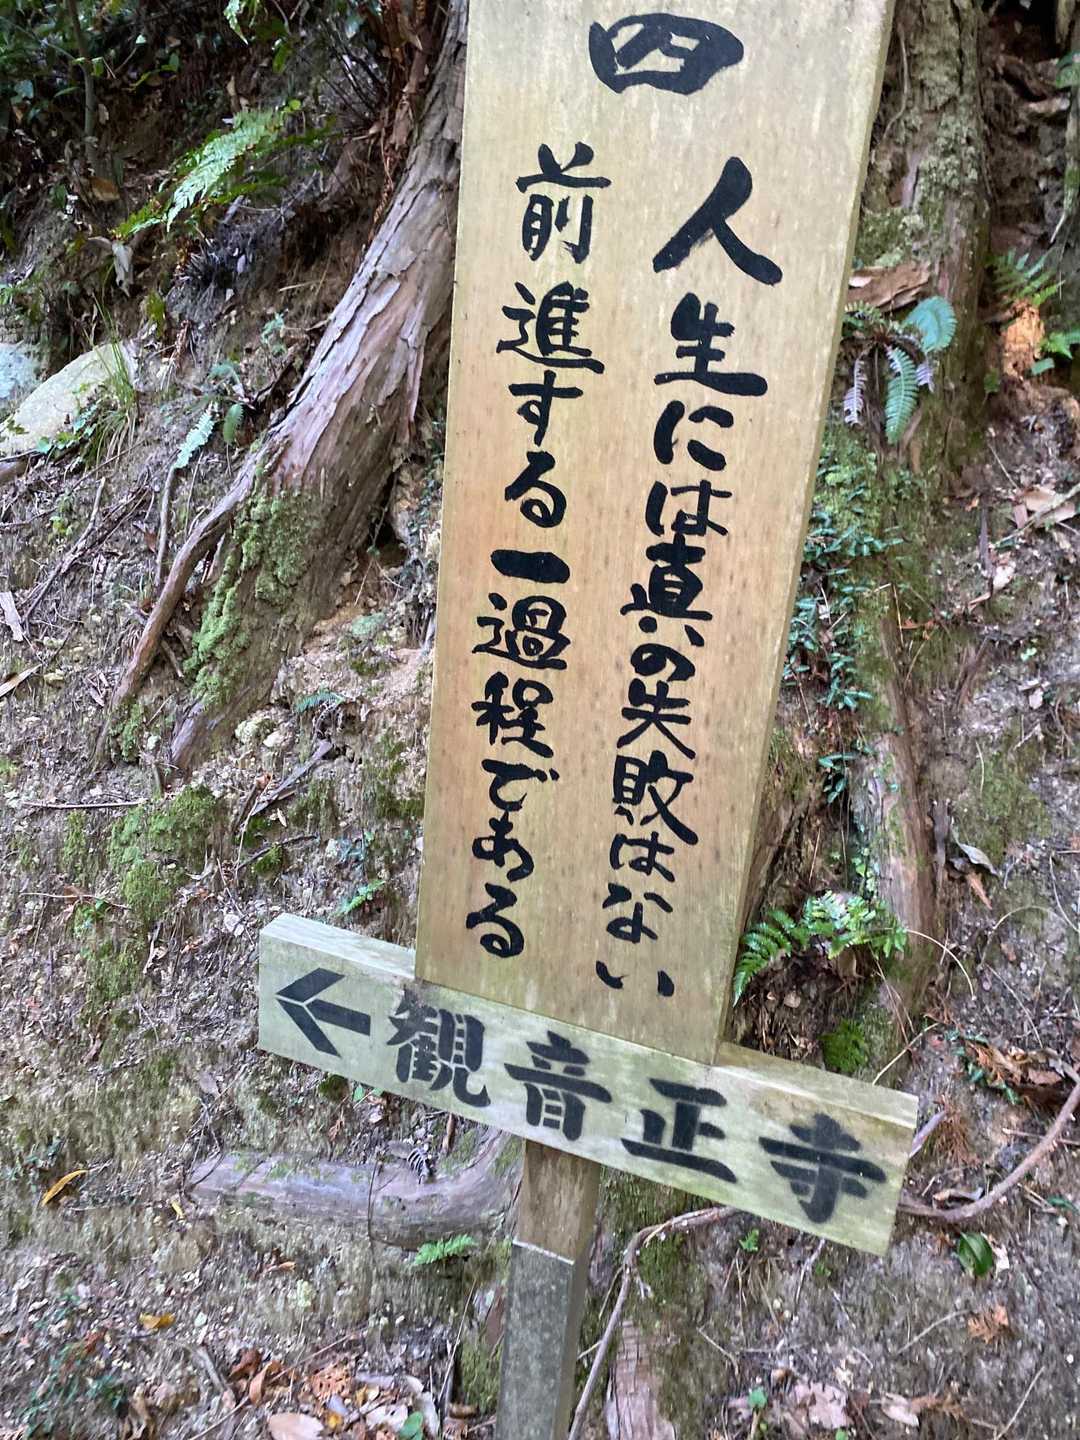 四
人生には真の失敗はない
前進する一過程である
←観音正寺